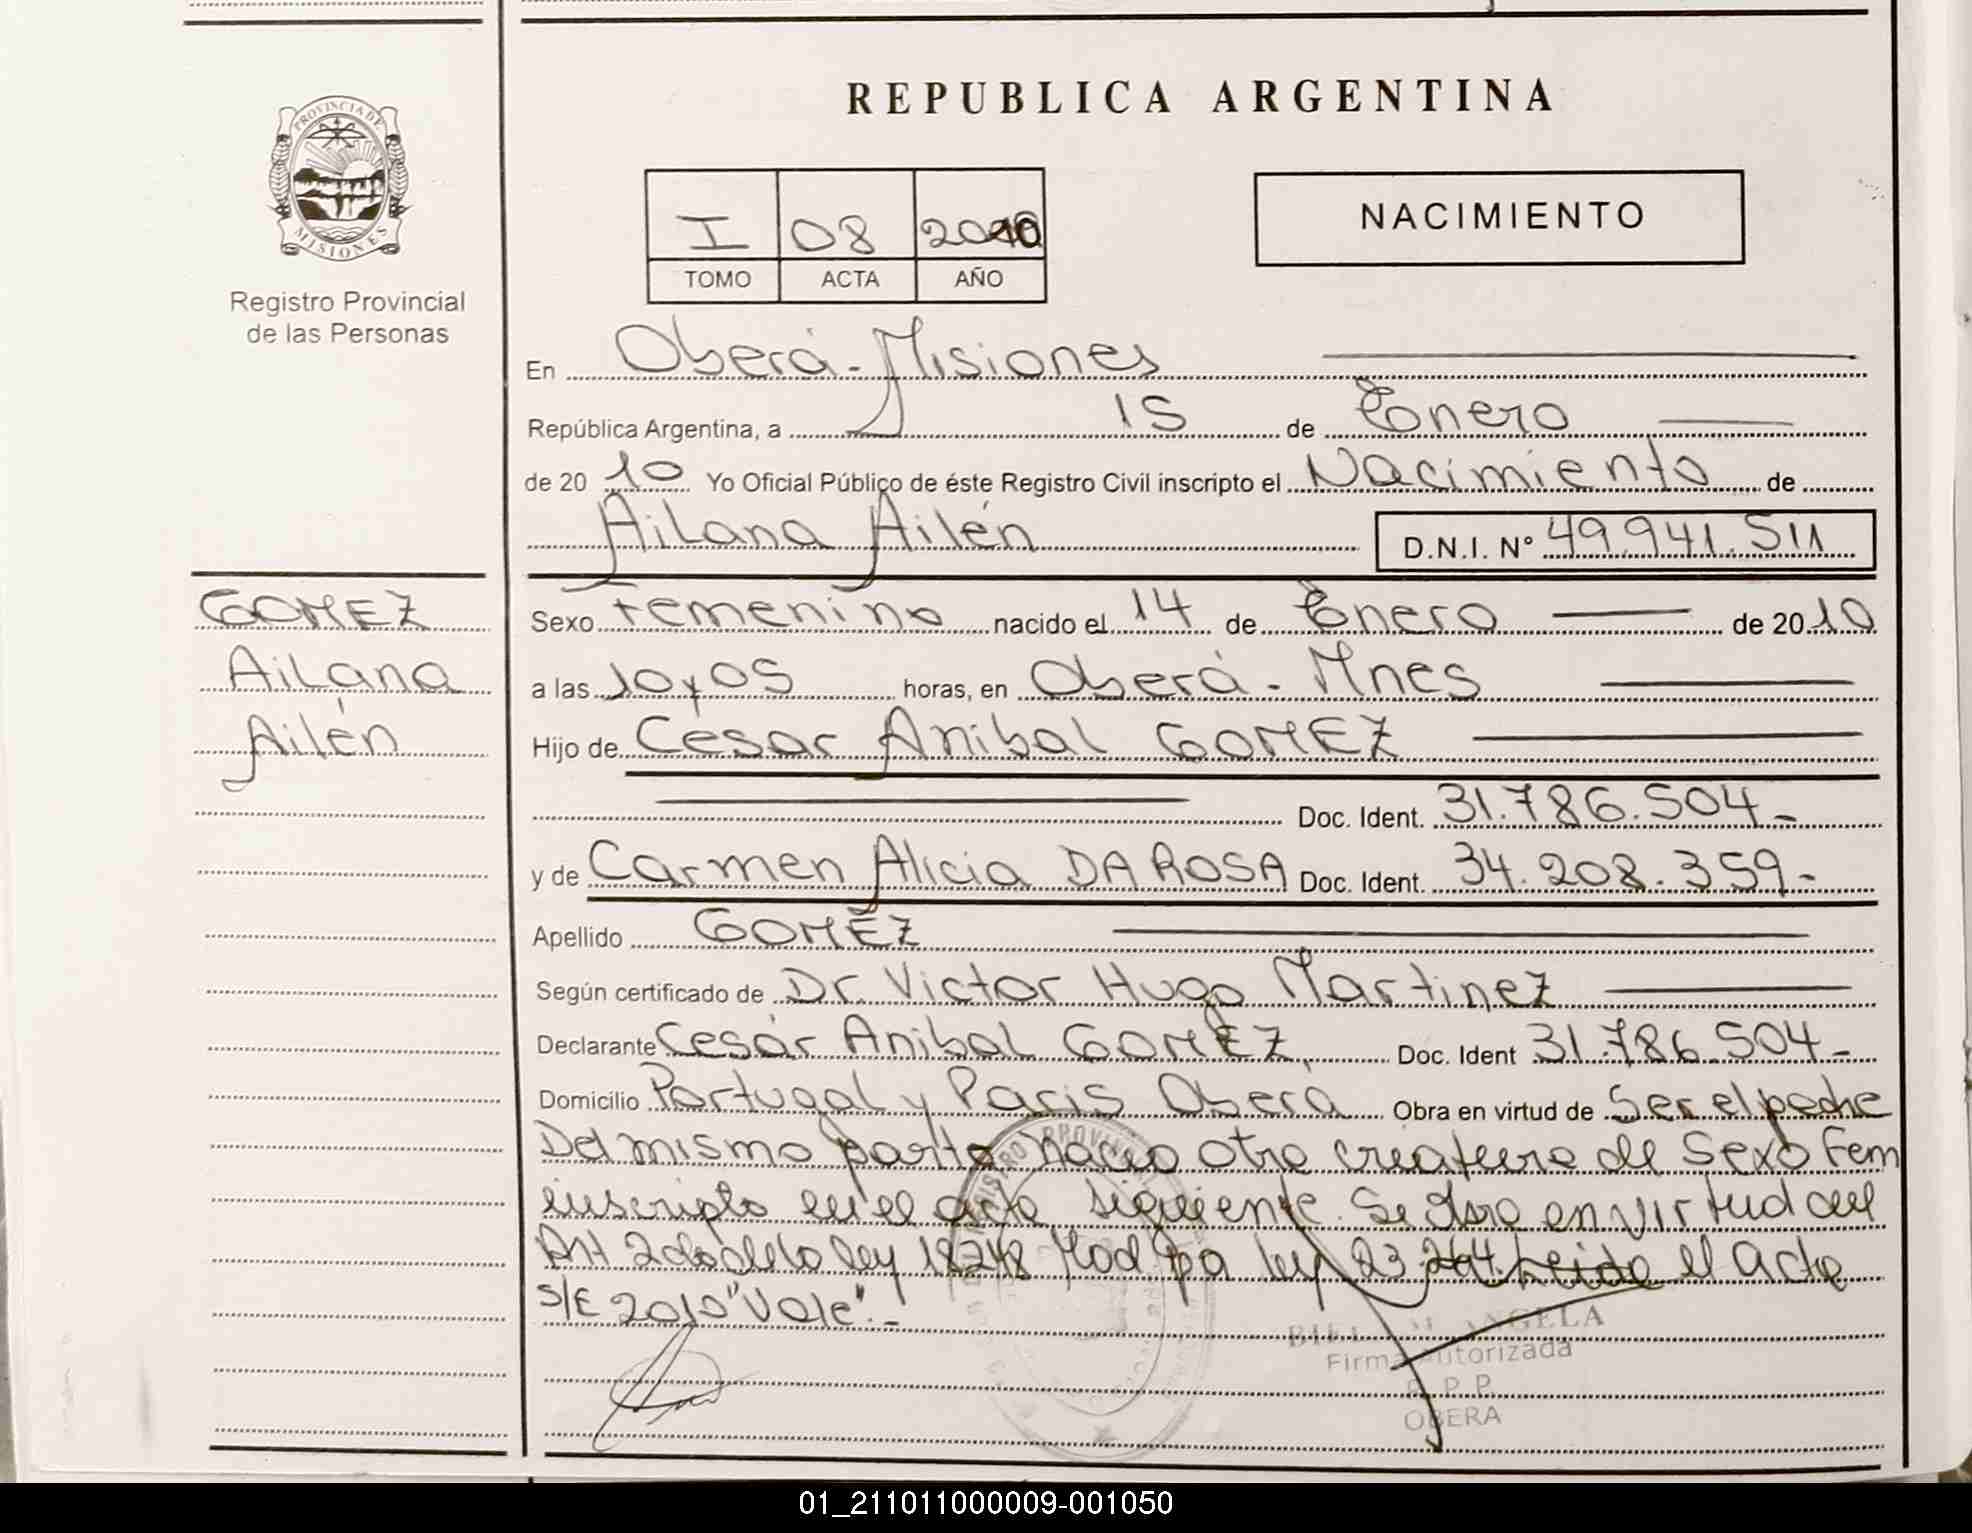 REPUBLICA ARGENTINA
PROVINCIA DE
MISIONES
Registro Provincial
de las Personas
I 08 2010
TOMO ACTA AÑO
NACIMIENTO
En Oberá - Misiones
República Argentina, a 15 de Enero
de 2010 Yo Oficial Público de éste Registro Civil inscripto el Nacimiento de
Ailana Ailén D.N.I. Nº 49.941.511
GOMEZ
Ailana
Ailén
Sexo Femenino nacido el 14 de Enero de 2010
a las 10 y 05 horas, en Oberá - Mnes
Hijo de César Anibal GOMEZ
Doc. Ident. 31.786.504-
y de Carmen Alicia DA ROSA Doc. Ident. 34.208.359-
Apellido GOMEZ
Según certificado de Dr. Victor Hugo Martinez
Declarante Cesár Anibal GOMEZ Doc. Ident 31.786.504-
Domicilio Portugal y Paris Oberá Obra en virtud de Ser el padre
Del mismo parto nacio otra criatura de Sexo Fem
inscripto en el acta siguiente. Se obra en virtud del
Art 2do de la ley 18248 Mod pa ley 23.264. Leida el acta
S/E 2010 "Vale".-
ANGELA
Firma Autorizada
R. P. P.
OBERA
01_211011000009-001050